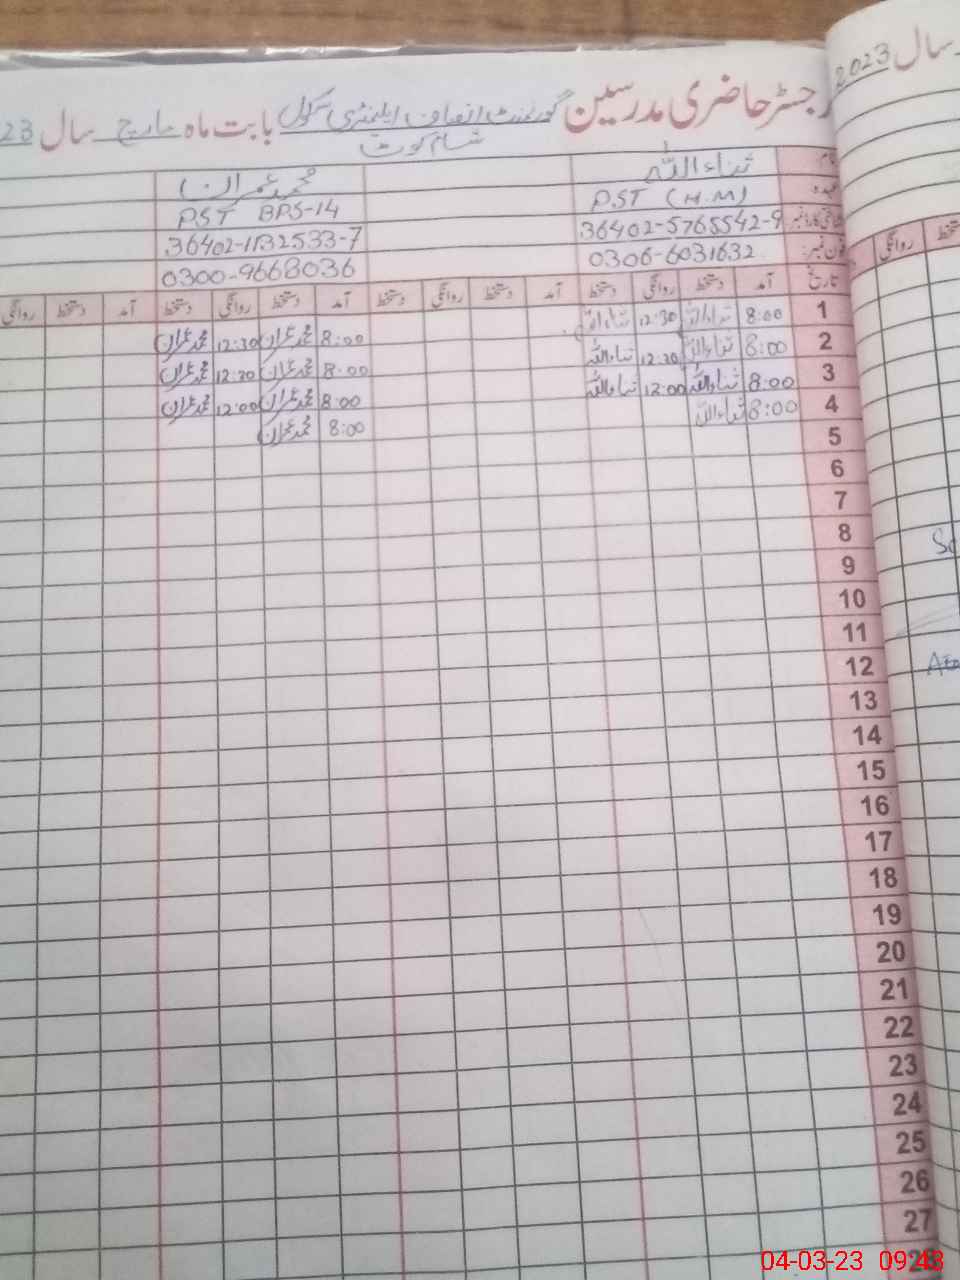 رجسٹر حاضری مدرسین گورنمنٹ انصاف ایلیمنٹری سکول بابت ماہ مارچ سال 23
شام کوٹ
سال 2023
نام ثناء اللہ محمد عمران
عہدہ PST (H.M) PST BPS-14
شناختی کارڈ نمبر 36402-5765542-9 36402-1132533-7
فون نمبر: 0306-6031632 0300-9668036
تاریخ آمد دستخط روانگی دستخط آمد دستخط روانگی دستخط آمد دستخط روانگی دستخط آمد دستخط روانگی
روانگی دستخط
1 8:00 ثناء اللہ 12:30 ثناء اللہ 8:00 محمد عمران 12:30 محمد عمران
2 8:00 ثناء اللہ 12:30 ثناء اللہ 8:00 محمد عمران 12:30 محمد عمران
3 8:00 ثناء اللہ 12:00 ثناء اللہ 8:00 محمد عمران 12:00 محمد عمران
4 8:00 ثناء اللہ 8:00 محمد عمران
5
6
7
8
9
10
11
12
13
14
15
16
17
18
19
20
21
22
23
24
25
26
27
28
04-03-23 09:43